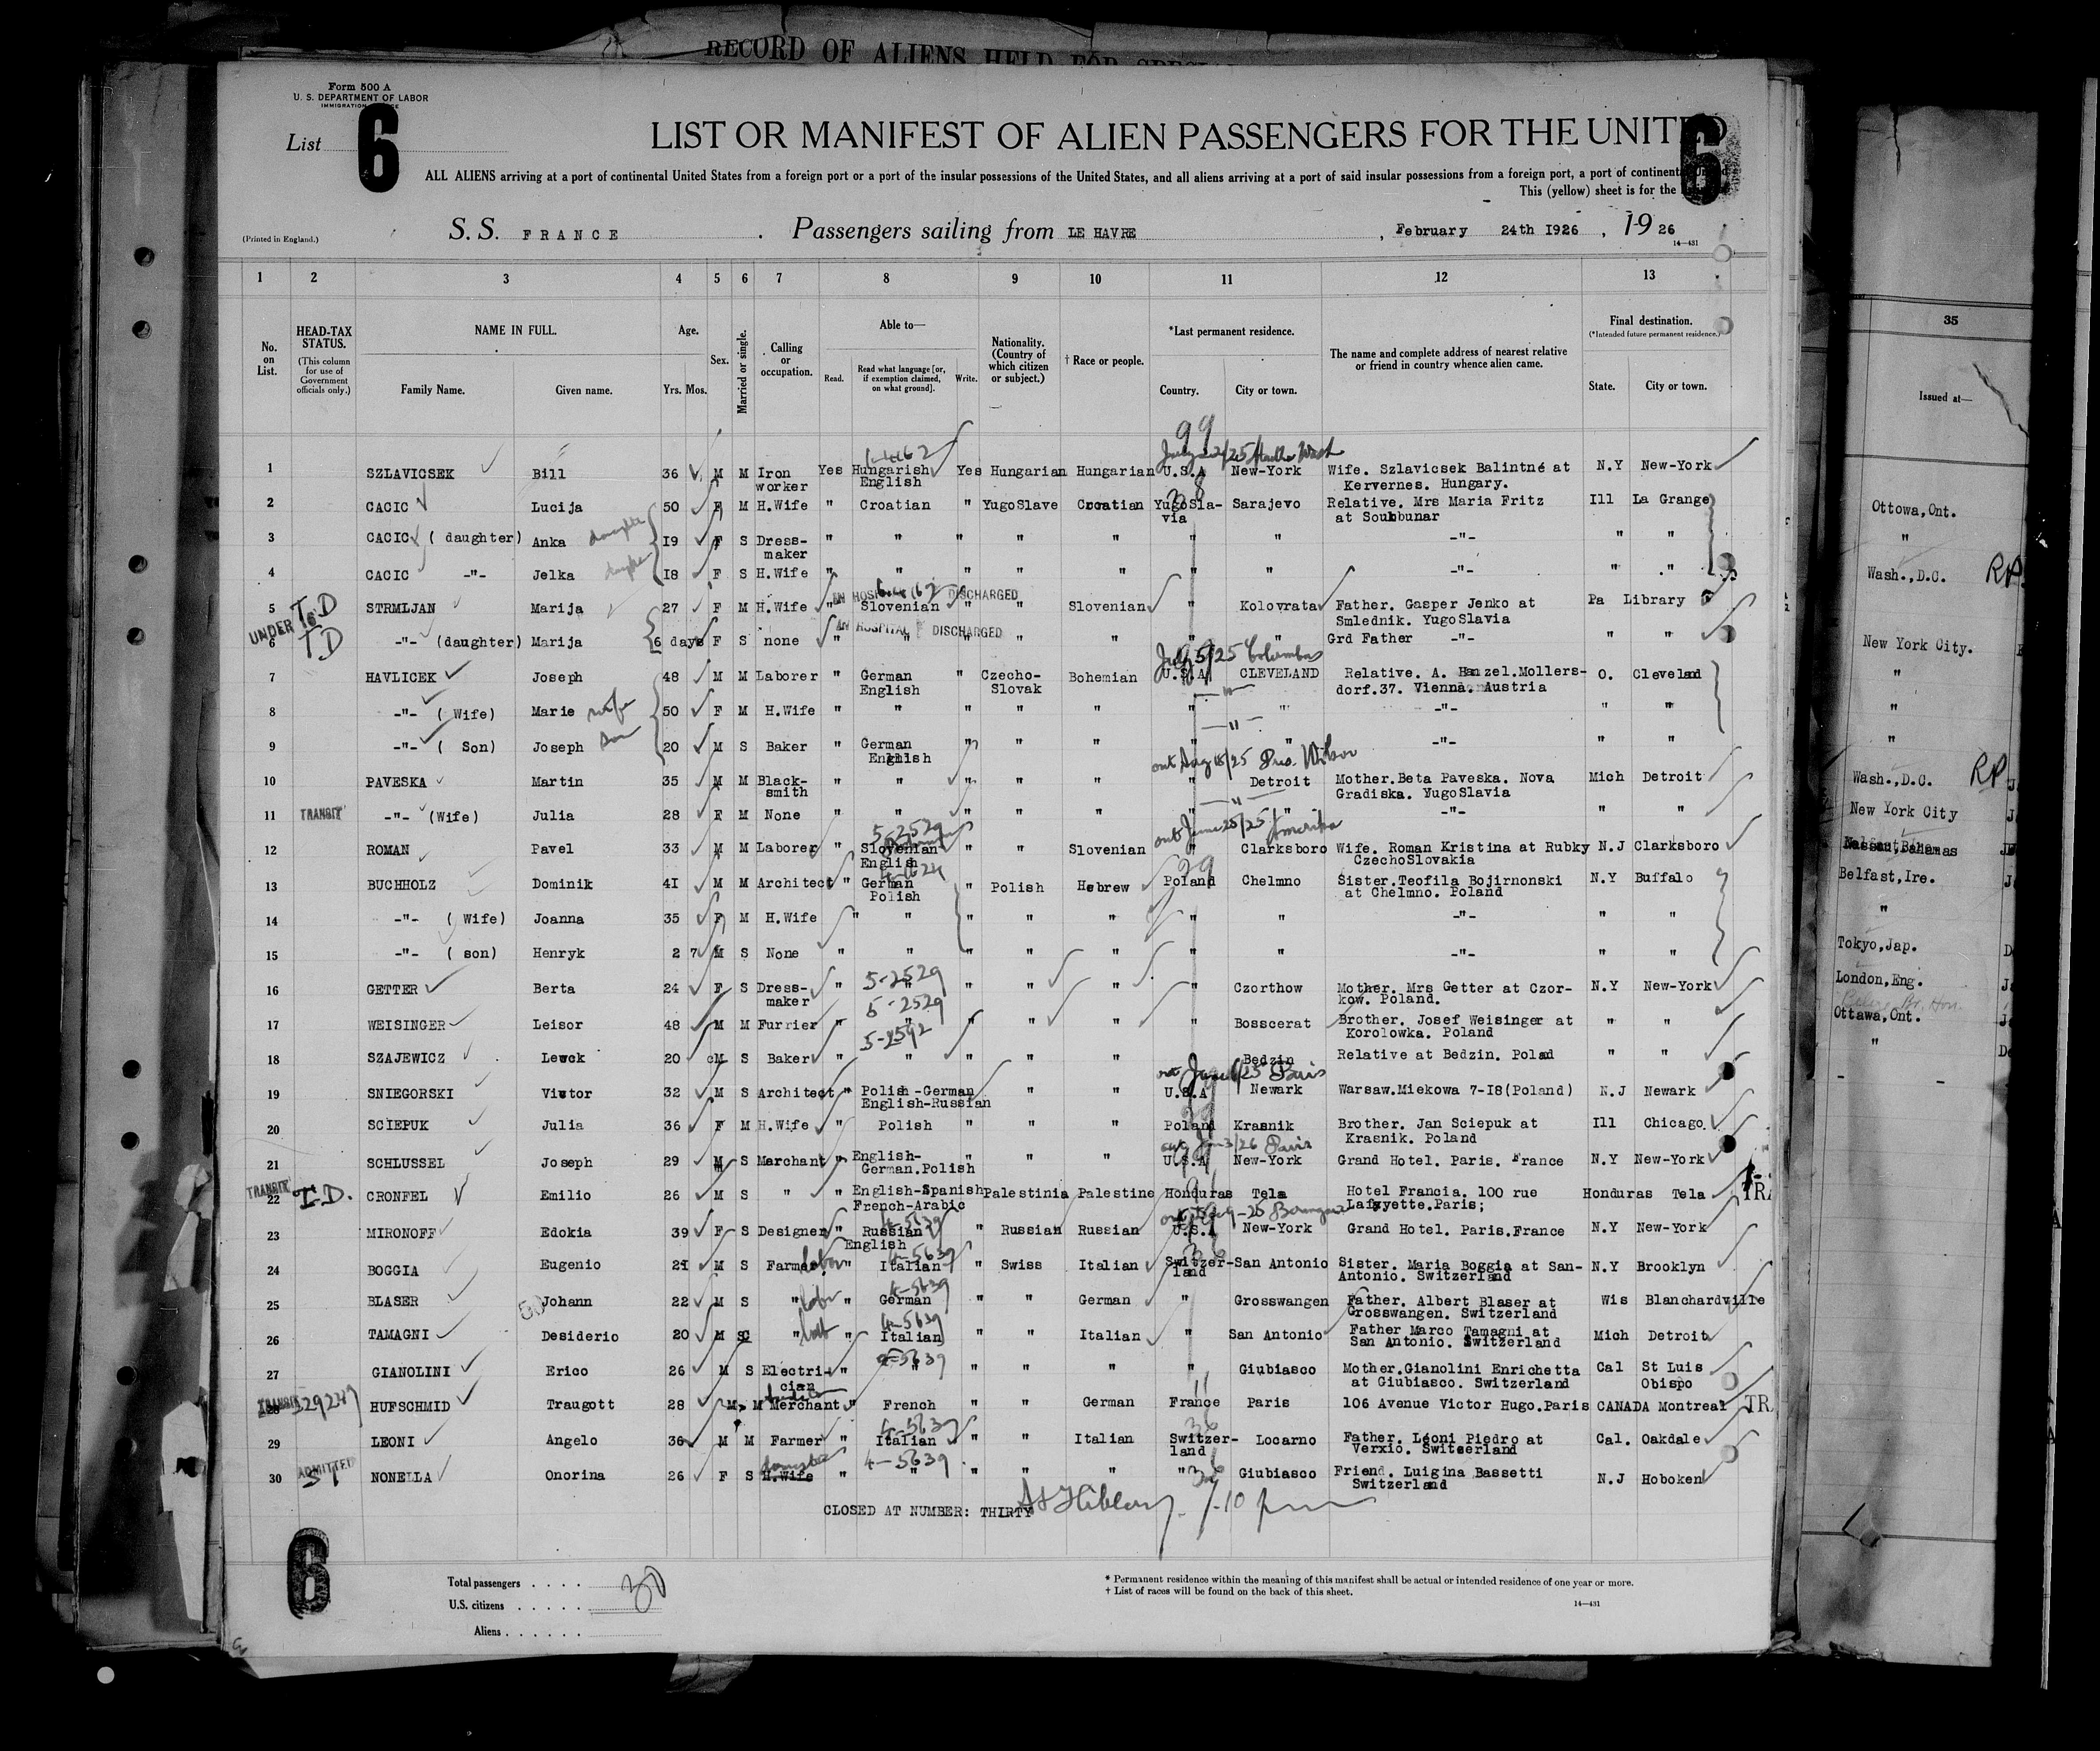 RECORD OF ALIENS HELD FOR
Form 500 A
U. S. DEPARTMENT OF LABOR
List 6
LIST OR MANIFEST OF ALIEN PASSENGERS FOR THE UNITED
6
ALL ALIENS arriving at a port of continental United States from a foreign port or a port of the insular possessions of the United States, and all aliens arriving at a port of said insular possessions from a foreign port, a port of continental
This (yellow) sheet is for the
(Printed in England.)
S. S. FRANCE . Passengers sailing from LE HAVRE , February 24th 1926 , 19 26
14—431
1 2 3 4 5 6 7 8 9 10 11 12 13
No. on List. HEAD-TAX STATUS. (This column for use of Government officials only.) NAME IN FULL. Family Name. Given name. Age. Yrs. Mos. Sex. Married or single. Calling or occupation. Able to— Read. Read what language [or, if exemption claimed, on what ground]. Write. Nationality. (Country of which citizen or subject.) † Race or people. *Last permanent residence. Country. City or town. The name and complete address of nearest relative or friend in country whence alien came. Final destination. (*Intended future permanent residence.) State. City or town.
99
1 SZLAVICSEK Bill 36 M M Iron worker Yes Hungarish English Yes Hungarian Hungarian U.S.A New-York Wife. Szlavicsek Balintné at Kervernes. Hungary. N.Y New-York
2 CACIC Lucija 50 F M H.Wife " Croatian " YugoSlave Croatian YugoSla-via Sarajevo Relative. Mrs Maria Fritz at Soubbunar Ill La Grange
3 CACIC ( daughter) Anka daughter I9 F S Dress-maker " " " " " " " -"- " "
4 CACIC -"- Jelka daughter I8 F S H.Wife " " " " " " " -"- " "
IN HOSPITAL DISCHARGED
5 T.D STRMLJAN Marija 27 F M H.Wife " Slovenian " " Slovenian " Kolovrata Father. Gasper Jenko at Smlednik. YugoSlavia Pa Library
UNDER 16 IN HOSPITAL DISCHARGED
6 TD -"- (daughter) Marija 6 days F S none " " " " " " " Grd Father -"- " "
July 5/25 Columbus
7 HAVLICEK Joseph 48 M M Laborer " German English " Czecho-Slovak Bohemian U.S.A CLEVELAND Relative. A. Hanzel.Mollers-dorf.37. Vienna. Austria O. Cleveland
8 -"- ( Wife) Marie wife 50 F M H.Wife " " " " " " " -"- " "
9 -"- ( Son) Joseph son 20 M S Baker " German English " " " " " -"- " "
out Aug 18/25 Pres. Wilson
10 PAVESKA Martin 35 M M Black-smith " " " " " " Detroit Mother.Beta Paveska. Nova Gradiska. YugoSlavia Mich Detroit
11 TRANSIT -"- (Wife) Julia 28 F M None " " " " " " " -"- " "
5-2529
out June 25/25 America
12 ROMAN Pavel 33 M M Laborer " Slovenian English " " Slovenian " Clarksboro Wife. Roman Kristina at Rubky CzechoSlovakia N.J Clarksboro
13 BUCHHOLZ Dominik 4I M M Architect " German Polish " Polish Hebrew Poland Chelmno Sister.Teofila Bojirnonski at Chelmno. Poland N.Y Buffalo
14 -"- ( Wife) Joanna 35 F M H.Wife " " " " " " -"- " "
15 -"- ( son) Henryk 2 7 M S None " " " " " " " -"- " "
5-2529
16 GETTER Berta 24 F S Dress-maker " " " " " " Czorthow Mother. Mrs Getter at Czor-kow. Poland. N.Y New-York
5-2529
17 WEISINGER Leisor 48 M M Furrier " " " " " " Bosscerat Brother. Josef Weisinger at Korolowka. Poland " "
5-2592
18 SZAJEWICZ Lewck 20 M S Baker " " " " " Bedzin Relative at Bedzin. Poland " "
19 SNIEGORSKI Victor 32 M S Architect " Polish-German English-Russian " " U.S.A Newark Warsaw.Miekowa 7-I8(Poland) N.J Newark
20 SCIEPUK Julia 36 F M H.Wife " Polish " " " Poland Krasnik Brother. Jan Sciepuk at Krasnik. Poland Ill Chicago
out Jan 3/26 Paris
21 SCHLUSSEL Joseph 29 M S Merchant " English-German.Polish " " " U.S.A New-York Grand Hotel. Paris. France N.Y New-York
22 TRANSIT T.D. CRONFEL Emilio 26 M S " " English-Spanish French-Arabic Palestinia Palestine Honduras Tela Hotel Francia. 100 rue Lafayette.Paris; Honduras Tela TRA
4-5639
23 MIRONOFF Edokia 39 F S Designer " Russian English " Russian Russian U.S.A New-York Grand Hotel. Paris.France N.Y New-York
4-5639
24 BOGGIA Eugenio 2I M S Farmer labor " Italian " Swiss Italian Switzer-land San Antonio Sister. Maria Boggia at San-Antonio. Switzerland N.Y Brooklyn
4-5639
25 BLASER Johann 22 M S " labor " German " " German " Grosswangen Father. Albert Blaser at Grosswangen. Switzerland Wis Blanchardville
4-5639
26 TAMAGNI Desiderio 20 M S " " Italian " " Italian " San Antonio Father Marco Tamagni at San Antonio. Switzerland Mich Detroit
4-5639
27 GIANOLINI Erico 26 M S Electri-cian " " " " " " Giubiasco Mother.Gianolini Enrichetta at Giubiasco. Switzerland Cal St Luis Obispo
28 TRANSIT HUFSCHMID Traugott 28 M M Merchant " French " " German France Paris 106 Avenue Victor Hugo.Paris CANADA Montreal TR
4-5639
29 LEONI Angelo 36 M M Farmer " Italian " " Italian Switzer-land Locarno Father. Léoni Piedro at Verxio. Switeerland Cal. Oakdale
4-5639
30 ADMITTED NONELLA Onorina 26 F S H.Wife domestic " " " " " " Giubiasco Friend. Luigina Bassetti Switzerland N.J Hoboken
CLOSED AT NUMBER: THIRTY
6
Total passengers . . . . 30
U.S. citizens . . . . .
Aliens . . . . . .
* Permanent residence within the meaning of this manifest shall be actual or intended residence of one year or more.
† List of races will be found on the back of this sheet.
14—431
35
Issued at—
Ottowa,Ont.
"
Wash.,D.C.
New York City.
"
"
"
Wash.,D.C.
New York City
Belfast,Ire.
"
Tokyo,Jap.
London,Eng.
Ottawa,Ont.
"